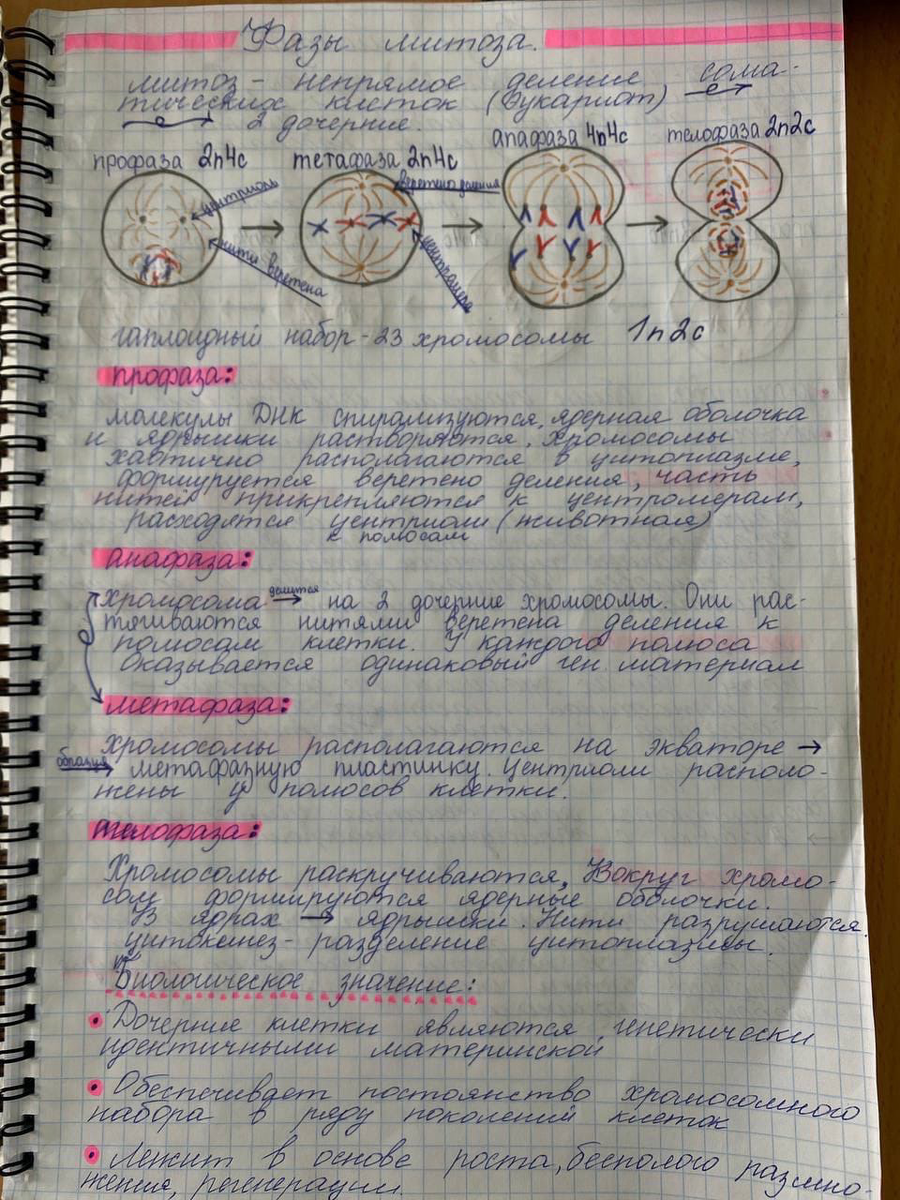 Фазы митоза.
митоз - непрямое деление сома-
тических клеток (эукариот)
2 дочерние.
профаза 2n4c
метафаза 2n4c
анафаза 4n4c
телофаза 2n2c
центриоль
нити веретена
веретено деления
центромера
гаплоидный набор - 23 хромосомы 1n2c
профаза:
молекулы ДНК спирализуются, ядерная оболочка
и ядрышки растворяются. Хромосомы
хаотично располагаются в цитоплазме,
формируется веретено деления, часть
нитей прикрепляются к центромерам,
расходятся центриоли (животная)
к полюсам
анафаза:
хромосома делится → на 2 дочерние хромосомы. Они рас-
тягиваются нитями веретена деления к
полюсам клетки. У каждого полюса
оказывается одинаковый ген. материал
метафаза:
хромосомы располагаются на экваторе →
образуя метафазную пластинку. Центриоли располо-
жены у полюсов клетки.
телофаза:
Хромосомы раскручиваются, Вокруг хромо-
сом формируются ядерные оболочки.
В ядрах → ядрышки. Нити разрушаются.
цитокинез - разделение цитоплазмы.
Биологическое значение:
• Дочерние клетки являются генетически
идентичными материнской
• Обеспечивает постоянство хромосомного
набора в ряду поколений клеток
• Лежит в основе роста, бесполого размно-
жения, регенерации.